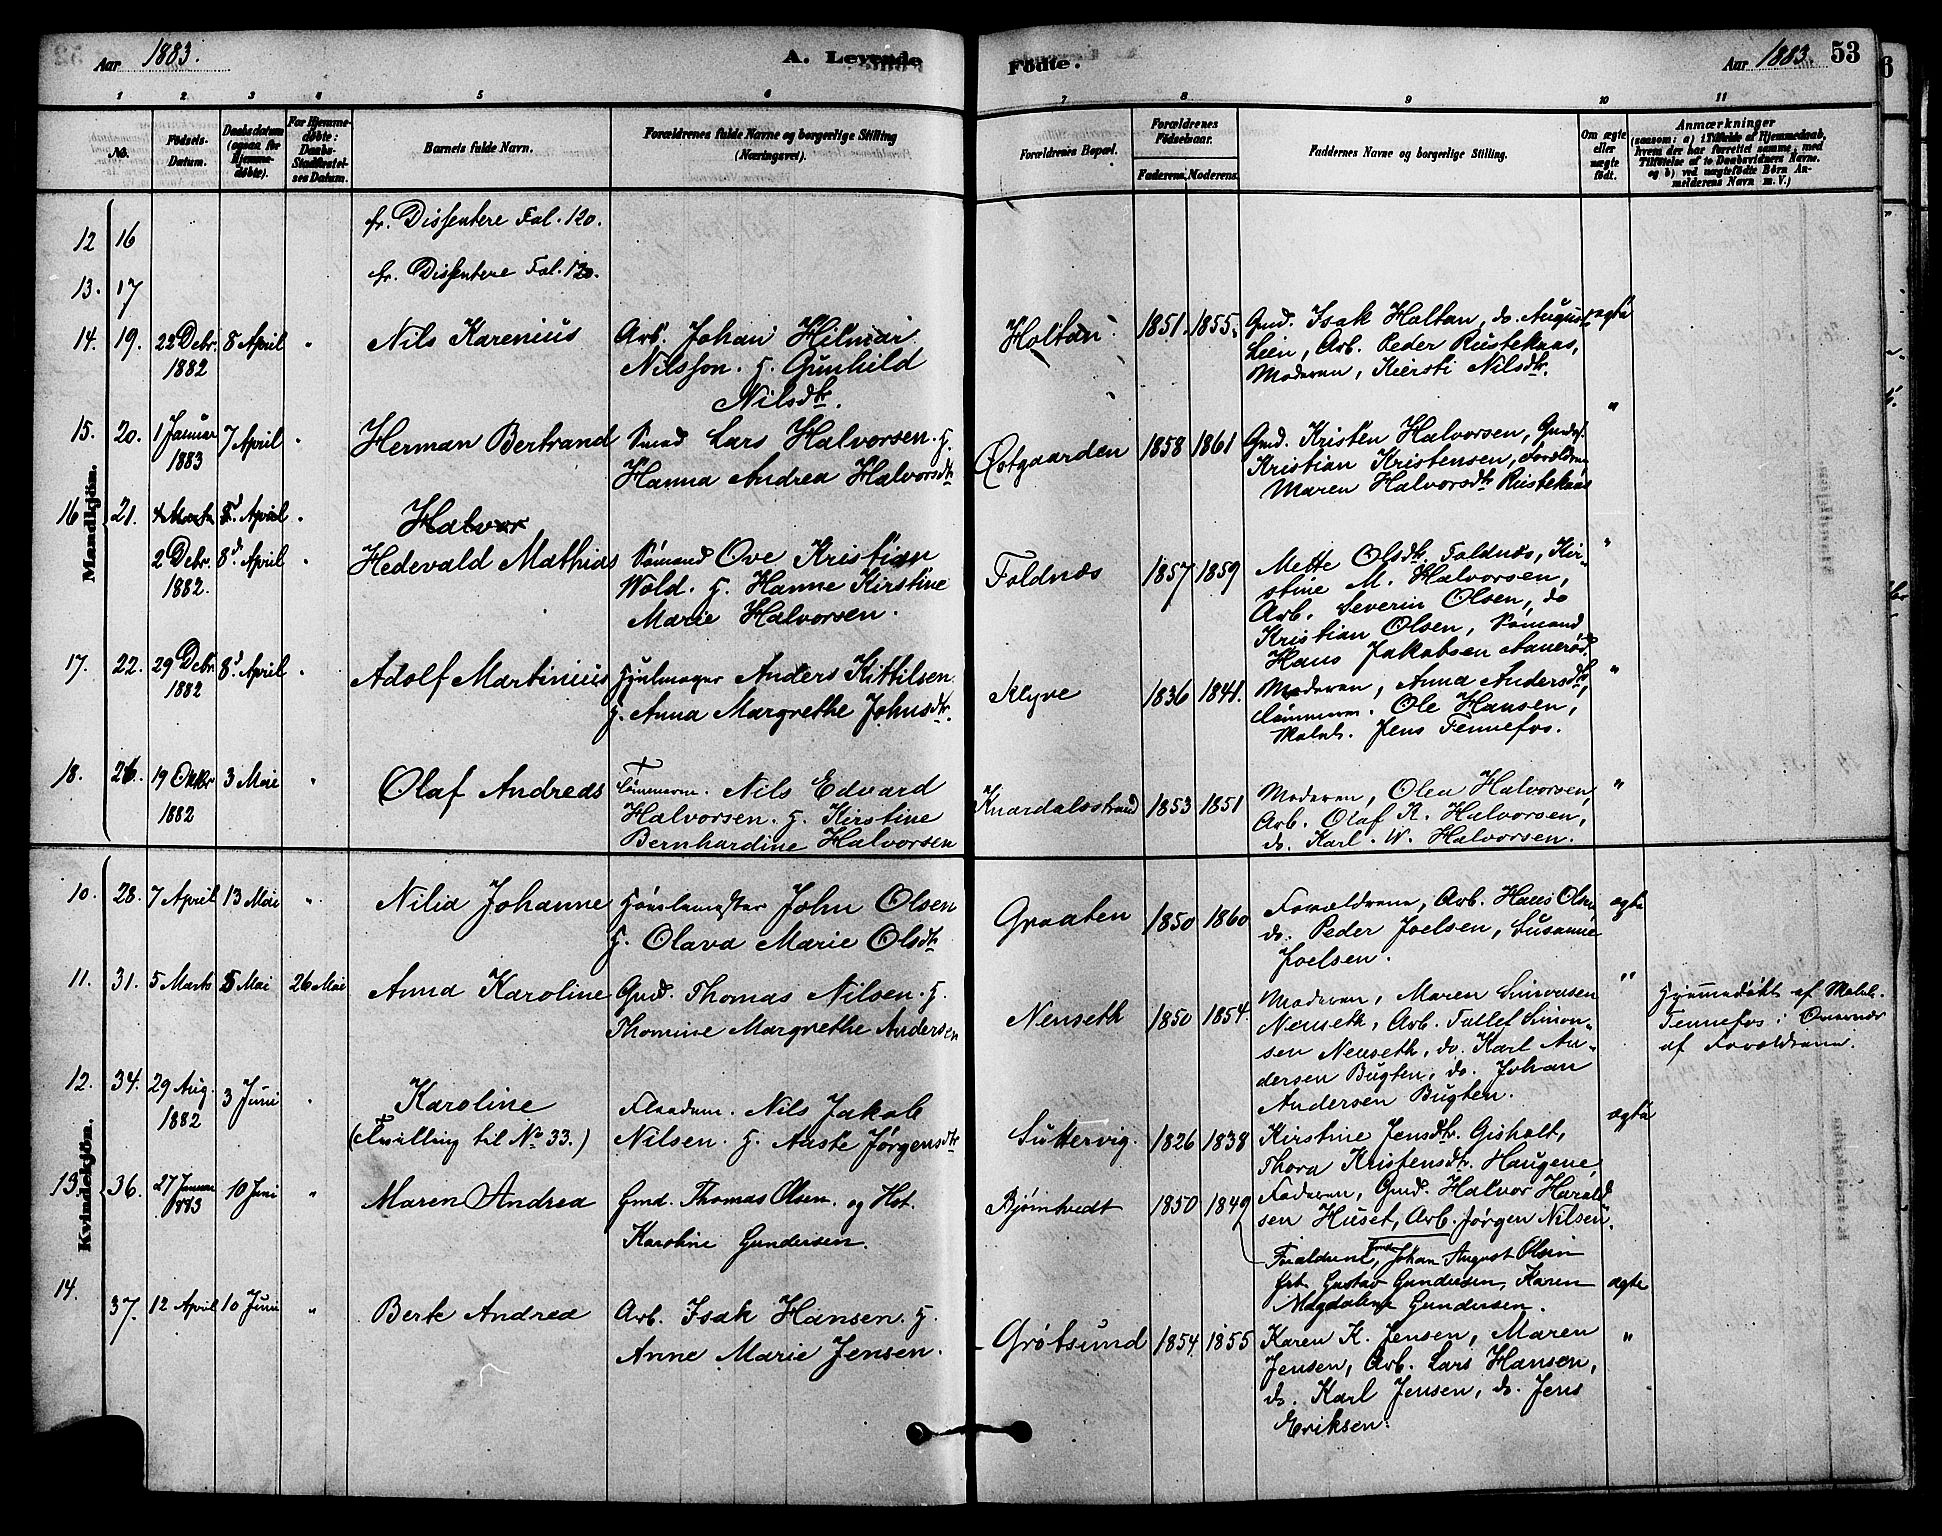 Aar 1883. A. Levende Födte. Aar 1883. 53
1 2 3 4 5 6 7 8 9 10 11
No.
Födsels-
Datum.
Daabsdatum
(ogsaa for
Hjemme-
döbte).
For Hjemme-
döbte:
Daabs-
Stadfæstel-
ses Datum.
Barnets fulde Navn.
Forældrenes fulde Navne og borgerlige Stilling
(Næringsvei).
Forældrenes Bopæl.
Forældrenes
Födselsaar.
Faderens. Moderens.
Faddernes Navne og borgerlige Stilling.
Om ægte
eller
uægte
födt.
Anmærkninger
(saasom: a) i Tilfælde af Hjemmedaab,
hvem der har forrettet samme, med
Tilföielse af to Daabsvidners Navne.
og b) ved uægtefödte Börn An-
melderens Navn m. V.)
Mandkjön.
12 16 fr. Dissentere Fol. 120.
13. 17 fr. Dissentere Fol. 120.
14. 19. 22 Debr. 8 April " Nils Karenius Arb. Johan Hilmar Holtan 1851. 1855. Gmd. Isak Holtan, do. August ægte
1882 Nilsson. H. Gunhild Lien, Arb. Peder Rustekaas,
Nilsdtr. Moderen, Kiersti Nilsdtr.
15. 20. 1 Januar 7 April " Herman Bertrand Smed Lars Halvorsen. H. Østgaarden 1858 1861 Gmd. Kristen Halvorsen, Gmdsf. "
1883 Hanna Andrea Halvorsdtr Kristian Kristensen, Forældrene
Maren Halvorsdtr Rustekaas
16 21. 4 Marts 8 April " Halvor
2 Debr. 8d. April " Hedevald Mathias Sömand Ove Kristian Foldnæs 1857 1859 Mette Olsdtr. Foldnæs, Kir- "
1882. Wold. H. Hanne Kirstine stine M. Halvorsen,
Marie Halvorsen. Arb. Severin Olsen, do
Kristian Olsen, Sømand
Hans Jakobsen
17. 22. 29 Debr. 8d. April " Adolf Martinius Hjulmager Anders Kittilsen. Klyve 1836 1841. Moderen, Anna Andersdtr, "
1882 H. Anna Margrethe Johnsdtr. Tömmerm. Ole Hansen,
Malerl. Jens Tennefos.
18. 26. 19 Oktbr 3 Mai " Olaf Andreas Tömmerm. Nils Edvard Knardalsstrand 1853 1851 Moderen, Olea Halvorsen, "
1882 Halvorsen. H. Kirstine Arb. Olaf N. Halvorsen,
Bernhardine Halvorsen do. Karl. W. Halvorsen.
Kvindekjön.
10. 28. 7 April 13 Mai " Nilia Johanne John Olsen Graaten 1850 1860 Forældrene, Arb. Hans Olsen ægte
H. Olava Marie Olsdtr do. Peder Joelsen, Susanne
Joelsen.
11. 31. 5 Marts 5 Mai 26 Mai Anna Karoline Gmd. Thomas Nilsen. H. Nenseth 1850 1854 Moderen, Maren Simonsen " Hjemmedøbt af
Thomine Margrethe Andersen Nenseth, Arb. Tollef Simon- Tennefos i Overvær
sen Nenseth, do. Karl An- af Forældrene.
dersen Bugten, do. Johan
Andersen Bugten.
12. 34. 29 Aug. 3 Juni " Karoline Nils Jakob Suttervig. 1826 1838 Kirstine Jensdtr. Gisholt, ægte
1882 (Tvilling til No 33.) Nilsen. H. Aaste Jørgensdtr Thora Kristensdtr. Haugene,
Faderen, Gmd. Halvor Harald
sen Huset, Arb. Jørgen Nilsen.
13. 36. 27 Januar 10 Juni " Maren Andrea Gmd. Thomas Olsen. og Hst. Bjørntvedt 1850 1849 Forældrene, Gmd. Johan August Olsen ægte
1883 Karoline Gundersen. Arb. Gustav Gundersen, Karen
Magdalene Gundersen.
14. 37. 12 April 10 Juni " Berte Andrea Arb. Isak Hansen. H. Grøtsund 1854. 1855 Karen K. Jensen, Maren "
Anne Marie Jensen. Jensen, Arb. Lars Hansen,
do. Karl Jensen, do. Jens
Eriksen.